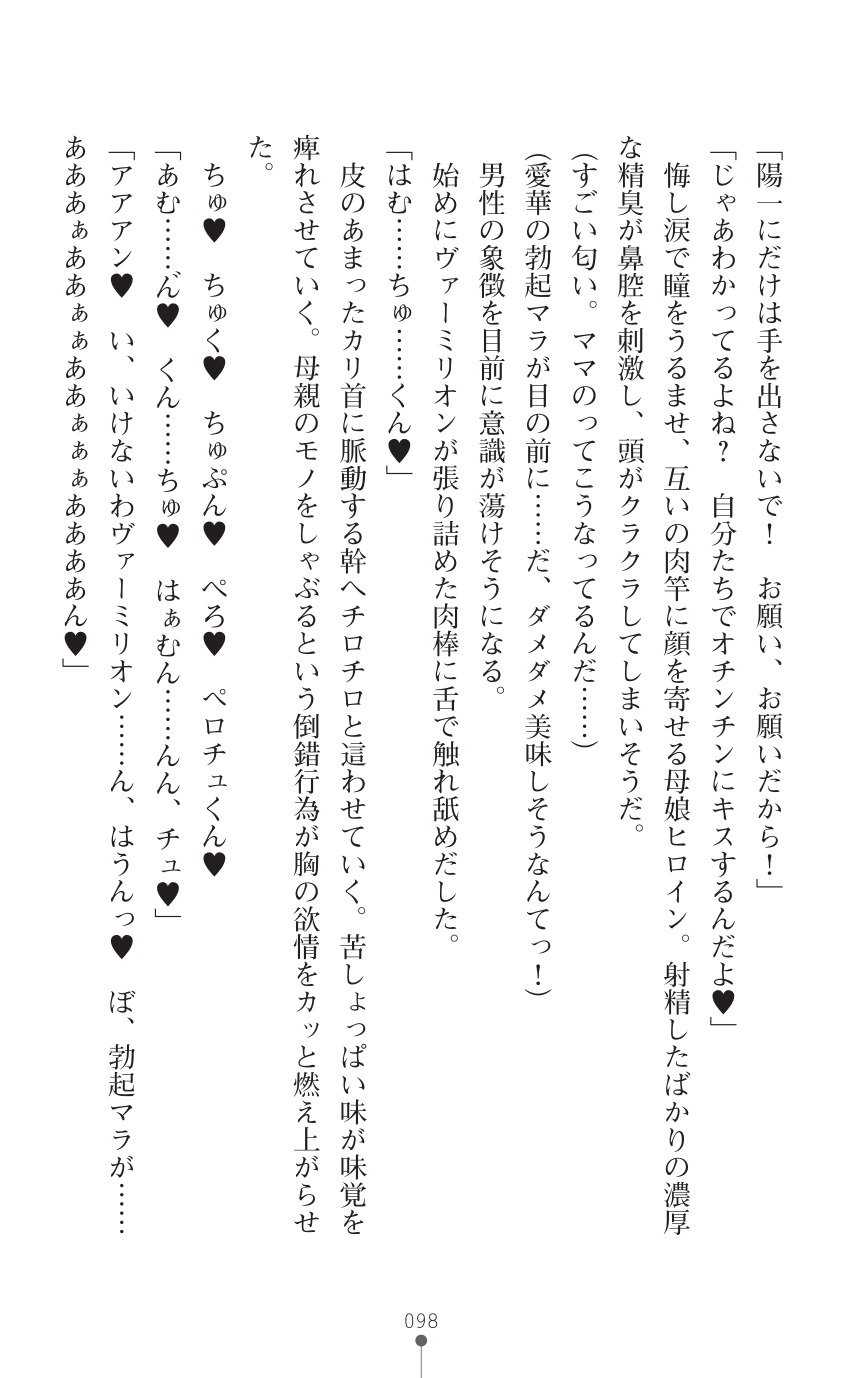 「陽一にだけは手を出さないで！　お願い、お願いだから！」
「じゃあわかってるよね？　自分たちでオチンチンにキスするんだよ♥」
悔し涙で瞳をうるませ、互いの肉竿に顔を寄せる母娘ヒロイン。射精したばかりの濃厚
な精臭が鼻腔を刺激し、頭がクラクラしてしまいそうだ。
（すごい匂い。ママのってこうなってるんだ……）
（愛華の勃起マラが目の前に……だ、ダメダメ美味しそうなんてっ！）
男性の象徴を目前に意識が蕩けそうになる。
始めにヴァーミリオンが張り詰めた肉棒に舌で触れ舐めだした。
「はむ……ちゅ……くん♥」
皮のあまったカリ首に脈動する幹へチロチロと這わせていく。苦しょっぱい味が味覚を
痺れさせていく。母親のモノをしゃぶるという倒錯行為が胸の欲情をカッと燃え上がらせ
た。
ちゅ♥　ちゅく♥　ちゅぷん♥　ぺろ♥　ペロチュくん♥
「あむ……ん゛♥　くん……ちゅ♥　はぁむん……んん、チュ♥」
「アアアン♥　い、いけないわヴァーミリオン……ん、はうんっ♥　ぼ、勃起マラが……
あああぁああぁぁああぁぁぁああああん♥」
098